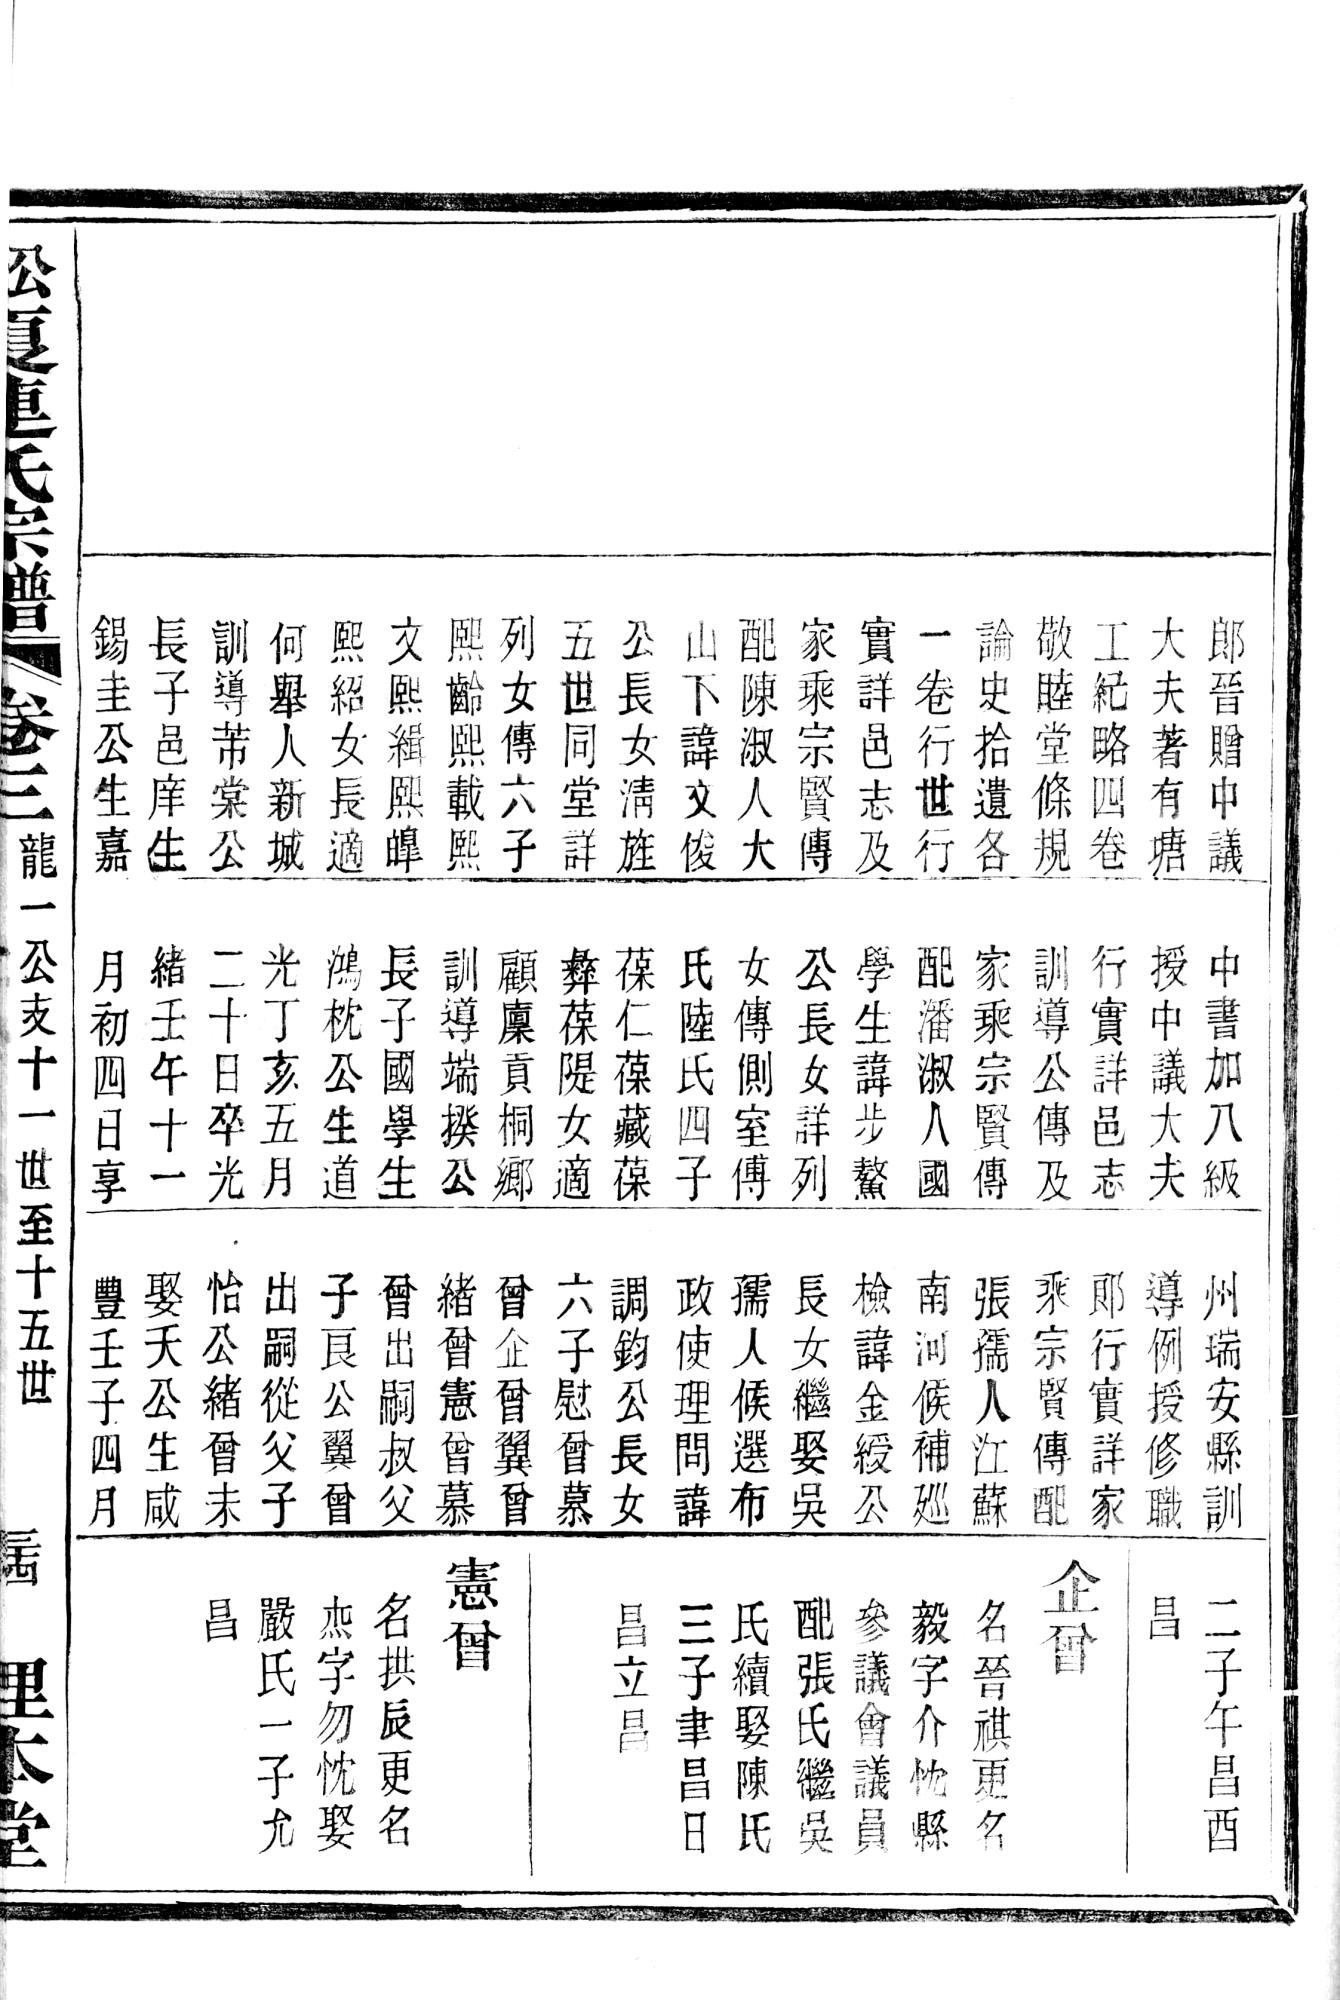 郎晉贈中議
大夫著有塘
工紀略四卷
敬睦堂條規
論史拾遺各
一卷行世行
實詳邑志及
家乘宗賢傳
配陳淑人大
山下諱文俊
公長女淸旌
五世同堂詳
列女傳六子
熙齡熙載熙
文熙緝熙皥
熙紹女長適
何舉人新城
訓導芾棠公
長子邑庠生
錫圭公生嘉
中書加八級
授中議大夫
行實詳邑志
訓導公傳及
家乘宗賢傳
配潘淑人國
學生諱步鰲
公長女詳列
女傳側室傅
氏陸氏四子
葆仁葆藏葆
彝葆隄女適
顧廩貢桐鄉
訓導端揆公
長子國學生
鴻枕公生道
光丁亥五月
二十日卒光
緒壬午十一
月初四日享
州瑞安縣訓
導例授修職
郎行實詳家
乘宗賢傳配
張孺人江蘇
南河候補廵
檢諱金綬公
長女繼娶吳
孺人候選布
政使理問諱
調鈞公長女
六子慰曾慕
曾企曾翼曾
緖曾憲曾慕
曾出嗣叔父
子艮公翼曾
出嗣從父子
怡公緖曾未
娶夭公生咸
豐壬子四月
二子午昌酉
昌
企曾
名晉祺更名
毅字介忱縣
參議會議員
配張氏繼吳
氏續娶陳氏
三子聿昌日
昌立昌
憲曾
名拱辰更名
杰字勿忱娶
嚴氏一子允
昌
松夏連氏宗譜 卷三 龍一公支十一世至十五世
理本堂